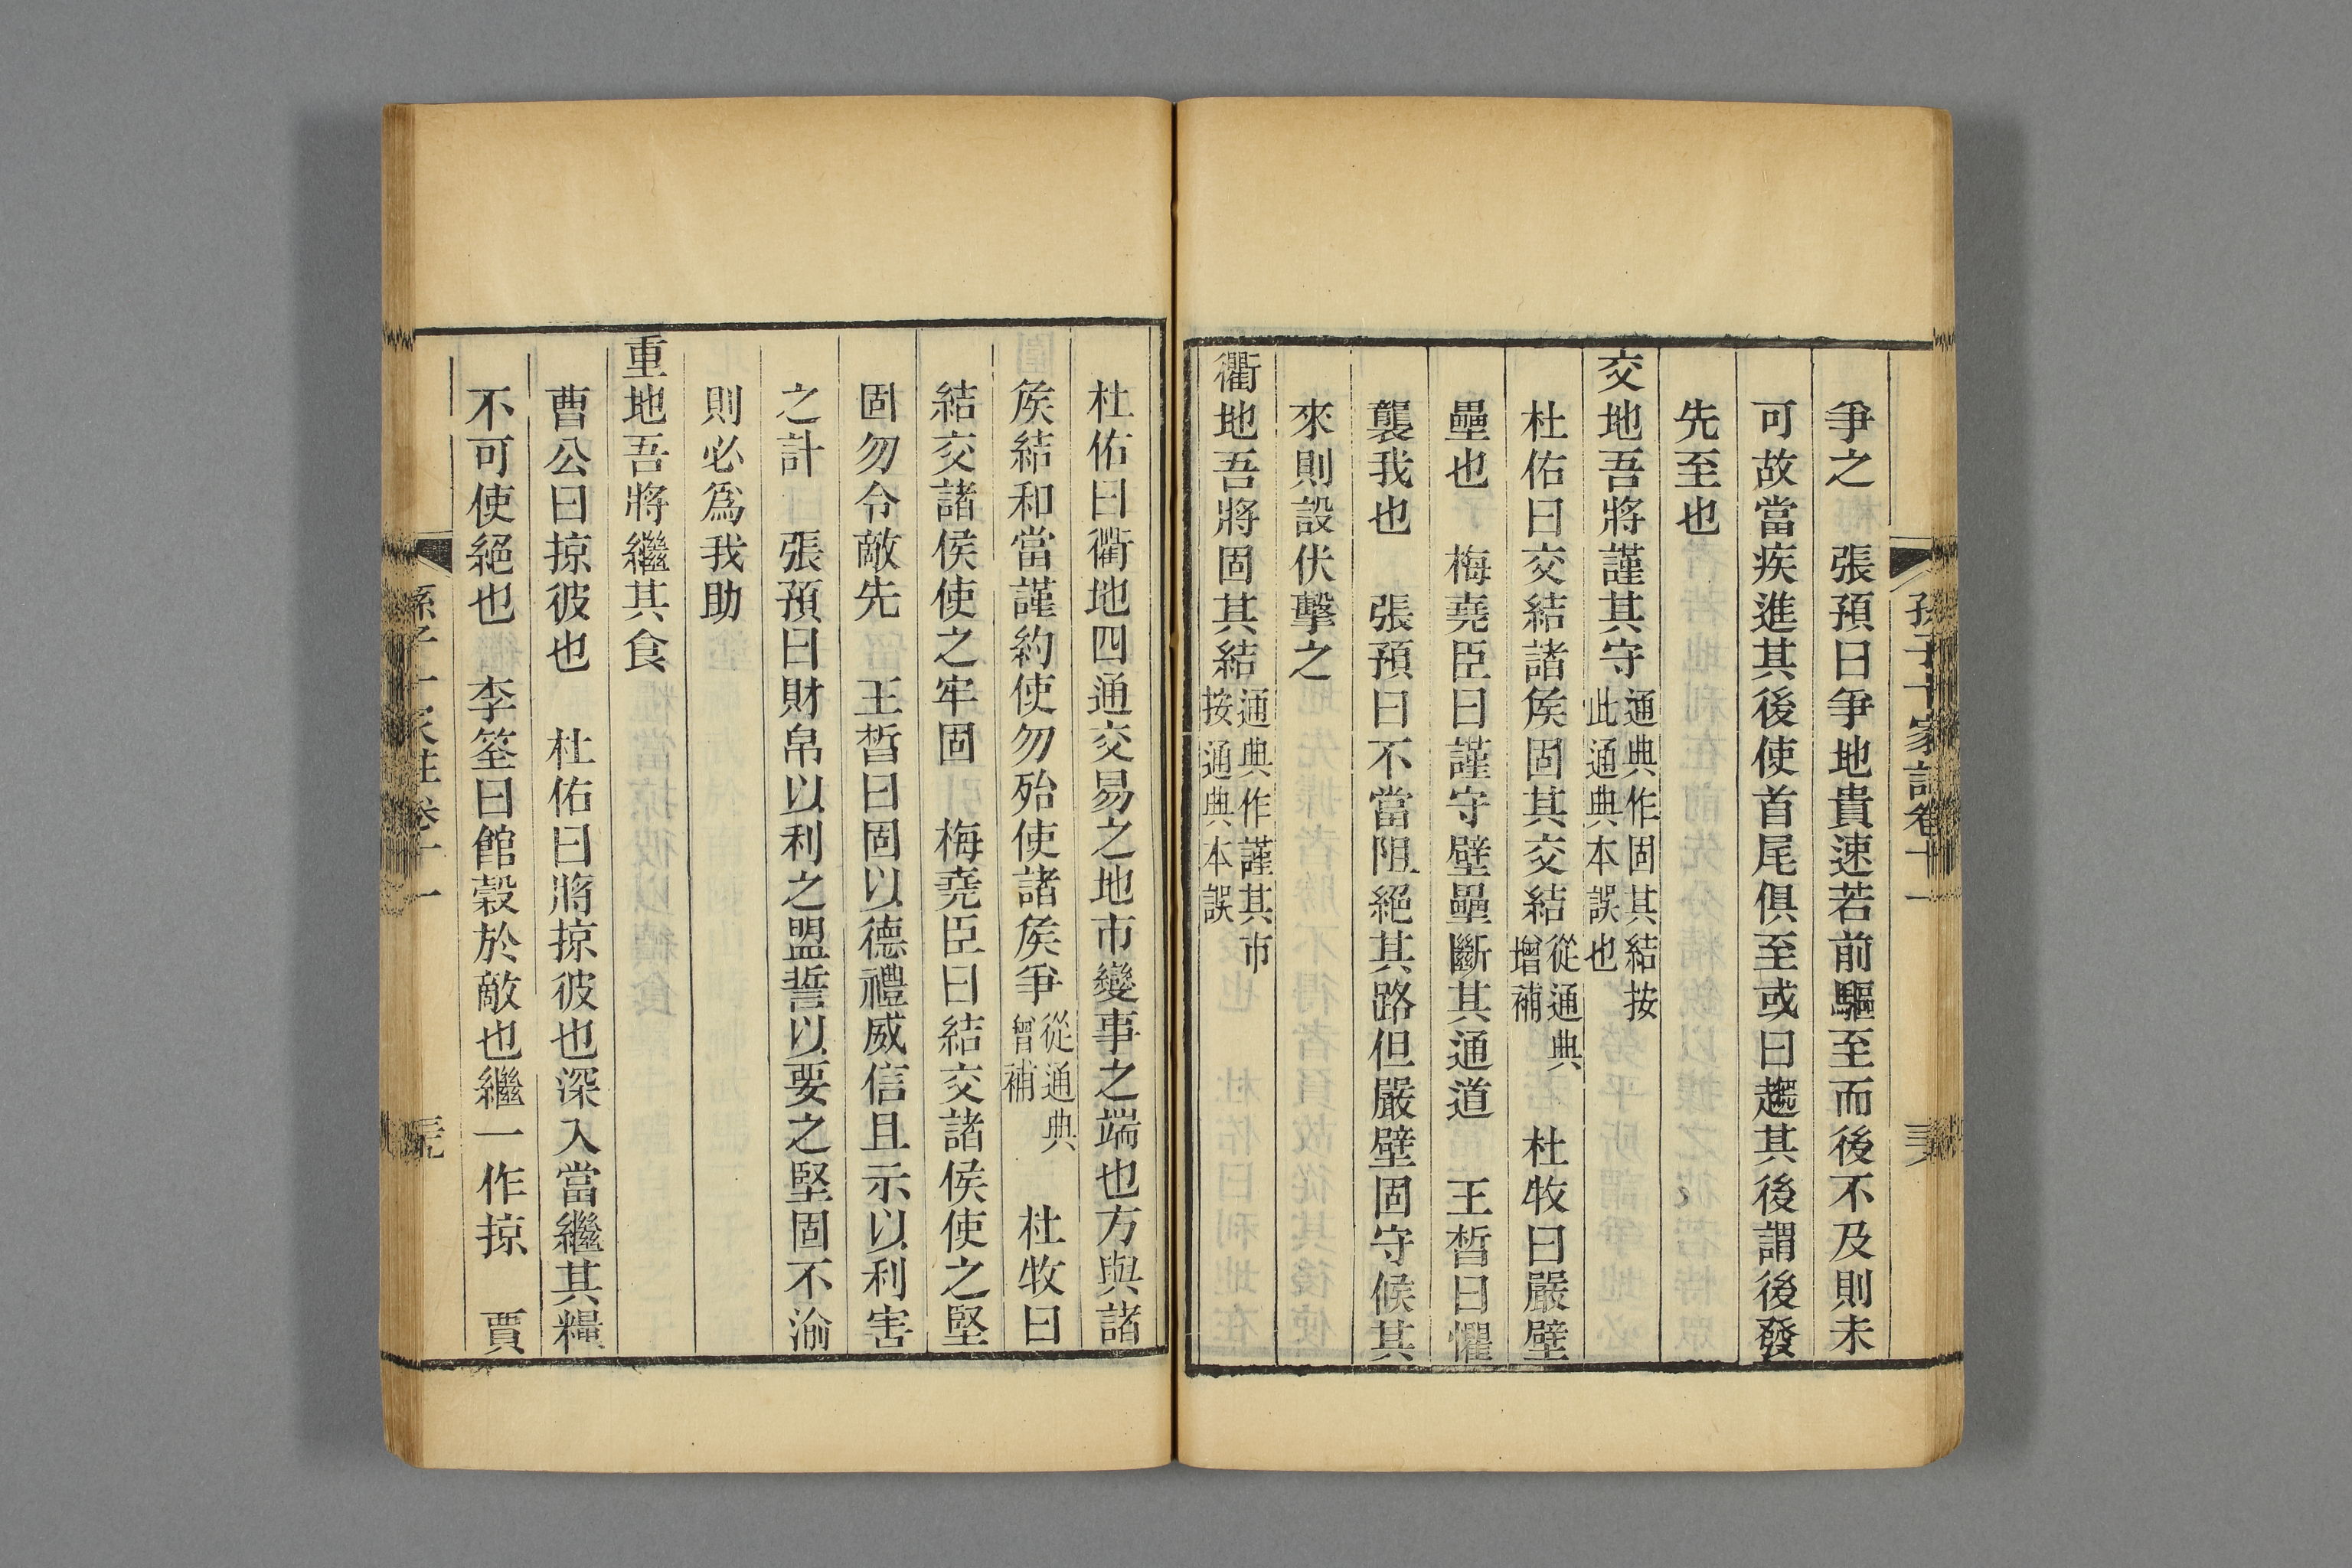 孫子十家註卷十一
爭之　張預曰爭地貴速若前驅至而後不及則未
可故當疾進其後使首尾俱至或曰趨其後謂後發
先至也
交地吾將謹其守通典作固其結按此通典本誤也
杜佑曰交結諸矦固其交結從通典增補　杜牧曰嚴壁
壘也　梅堯臣曰謹守壁壘斷其通道　王晳曰懼
襲我也　張預曰不當阻絕其路但嚴壁固守候其
來則設伏擊之
衢地吾將固其結通典作謹其市按通典本誤
杜佑曰衢地四通交易之地市變事之端也方與諸
矦結和當謹約使勿殆使諸矦爭從通典增補　杜牧曰
結交諸侯使之牢固　梅堯臣曰結交諸侯使之堅
固勿令敵先　王晳曰固以德禮威信且示以利害
之計　張預曰財帛以利之盟誓以要之堅固不渝
則必爲我助
重地吾將繼其食
曹公曰掠彼也　杜佑曰將掠彼也深入當繼其糧
不可使絕也　李筌曰館穀於敵也繼一作掠　賈